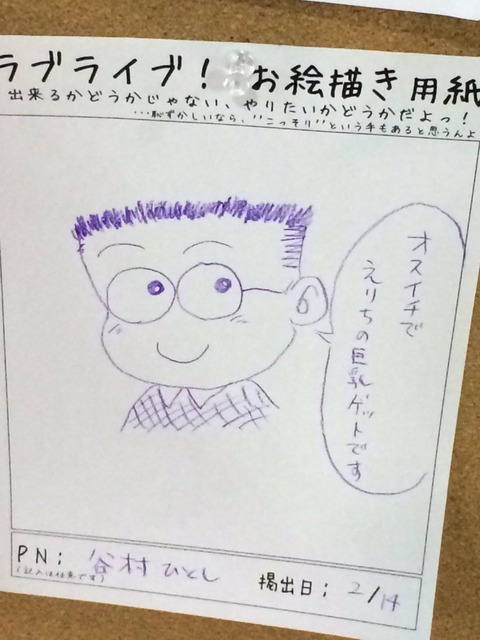 ラブライブ！お絵描き用紙
出来るかどうかじゃない、やりたいかどうかだよっ！
…恥ずかしいなら、"こっそり"という手もあると思うんよ
オスイチで
えりちの巨乳ゲットです
PN； 谷村ひとし
(記入は任意です)
掲出日； 2/14